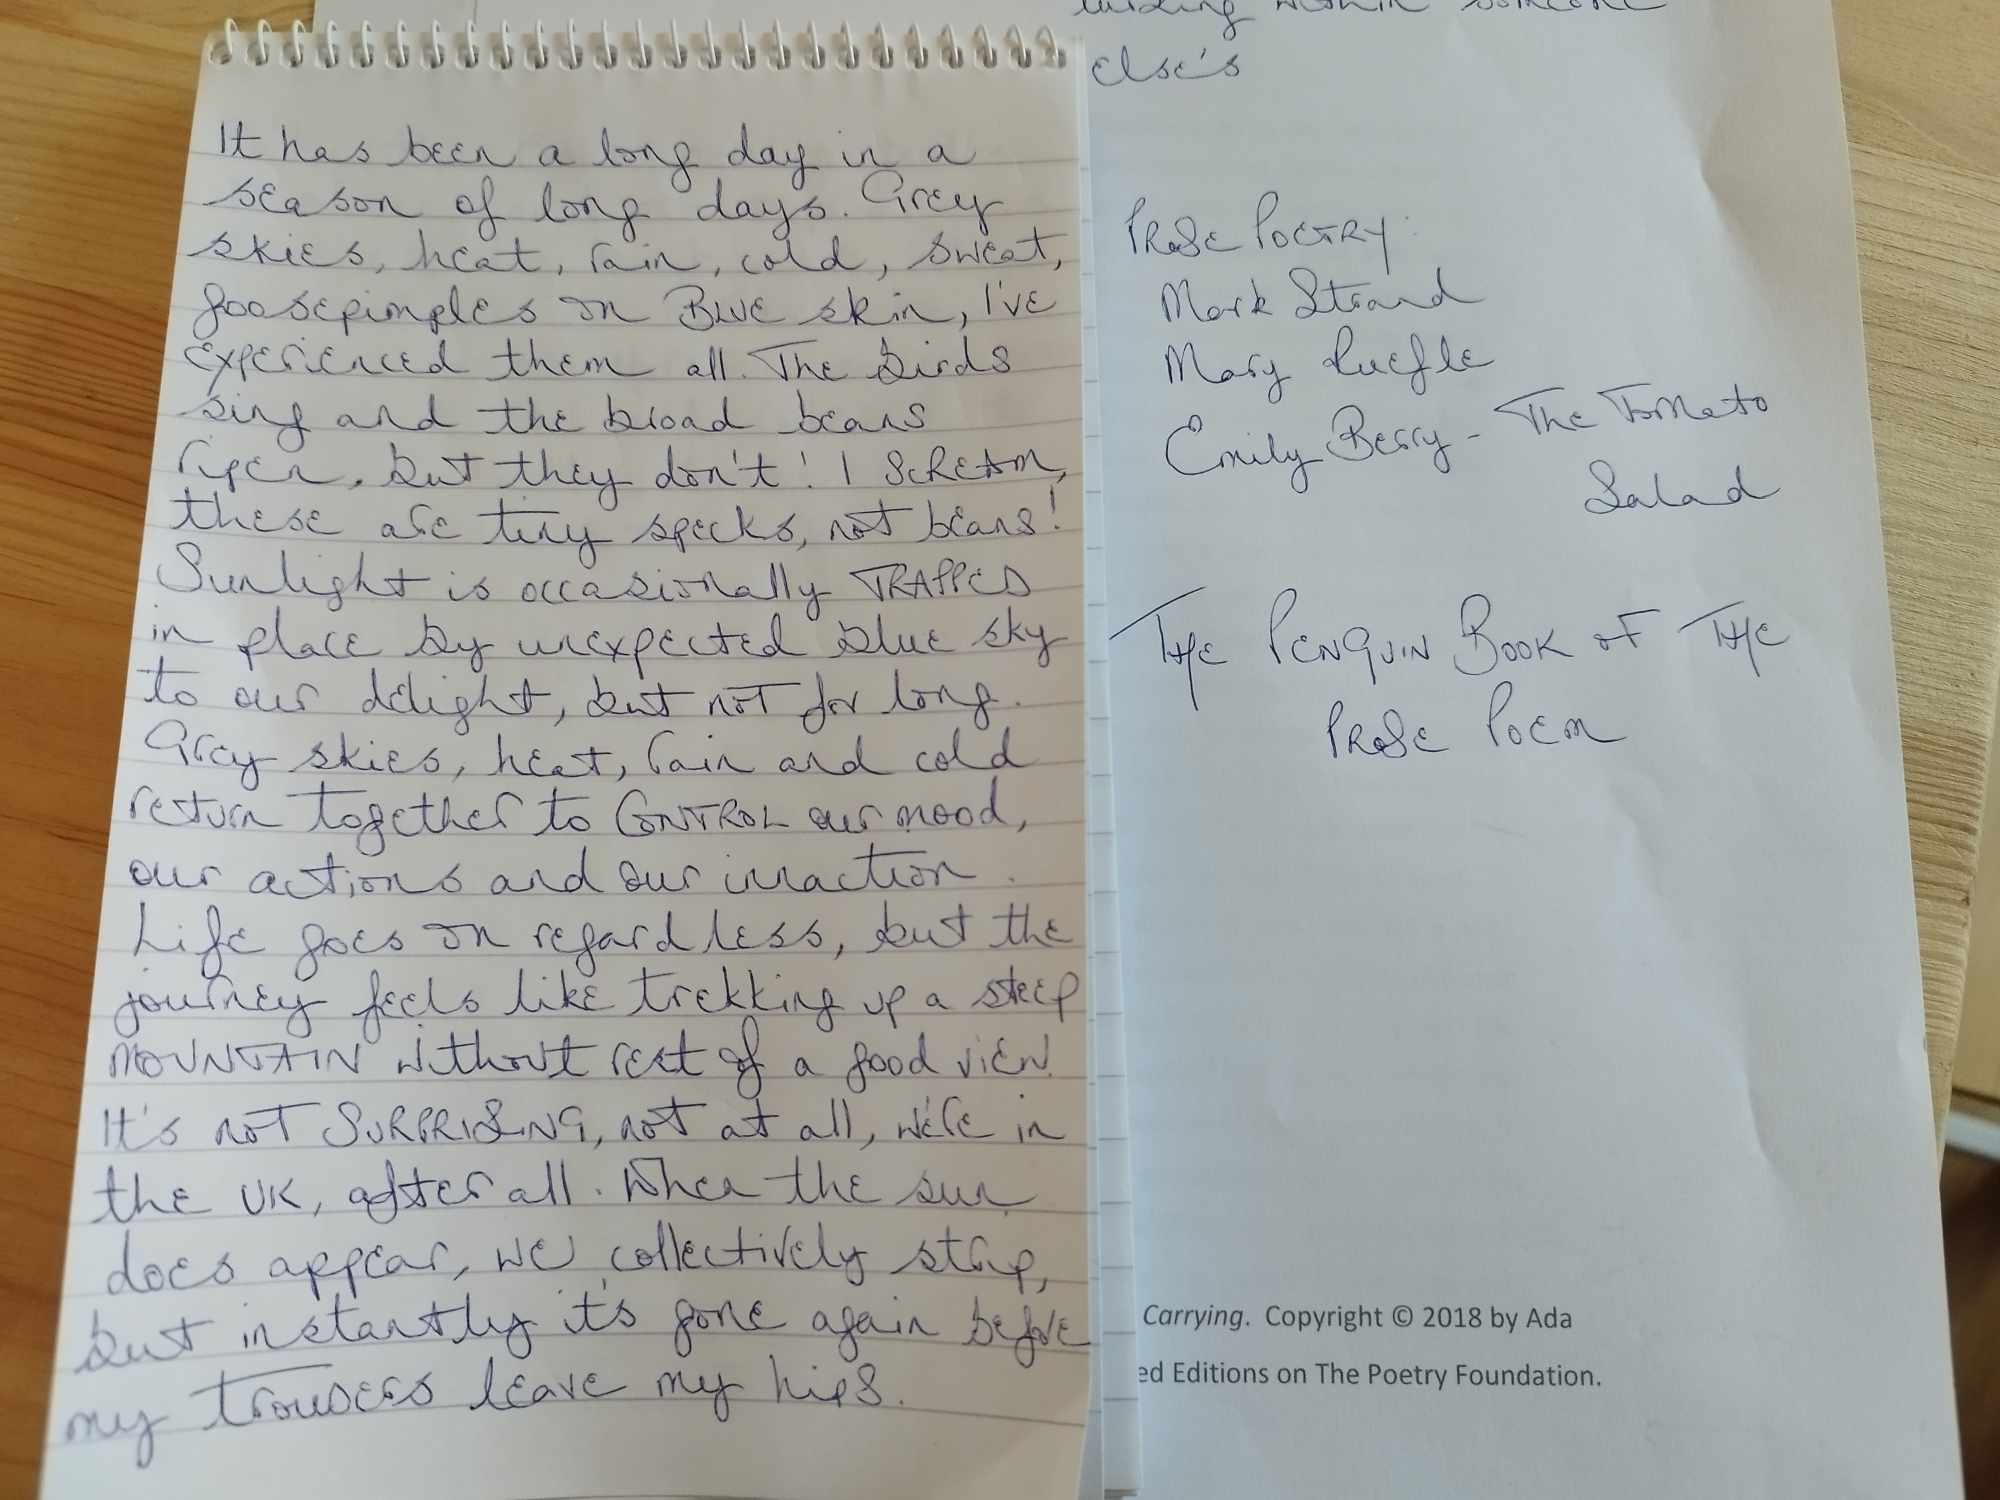 It has been a long day in a
season of long days. Grey
skies, heat, rain, cold, sweat,
goosepimples on BLUE skin, I've
experienced them all. The birds
sing and the broad beans
ripen, but they don't! I SCREAM,
these are tiny specks, not beans!
Sunlight is occasionally TRAPPED
in place by unexpected blue sky
to our delight, but not for long.
Grey skies, heat, rain and cold
return together to CONTROL our mood,
our actions and our innaction.
Life goes on regardless, but the
journey feels like trekking up a steep
MOUNTAIN without rest of a good view.
It's not SURPRISING, not at all, we're in
the UK, after all. When the sun
does appear, we collectively strip,
but instantly it's gone again before
my trousers leave my hips.
within someone
else's
PROSE POETRY:
Mark Strand
Mary Ruefle
Emily Berry - The Tomato
Salad
THE PENGUIN BOOK OF THE
PROSE POEM
Carrying. Copyright © 2018 by Ada
ed Editions on The Poetry Foundation.